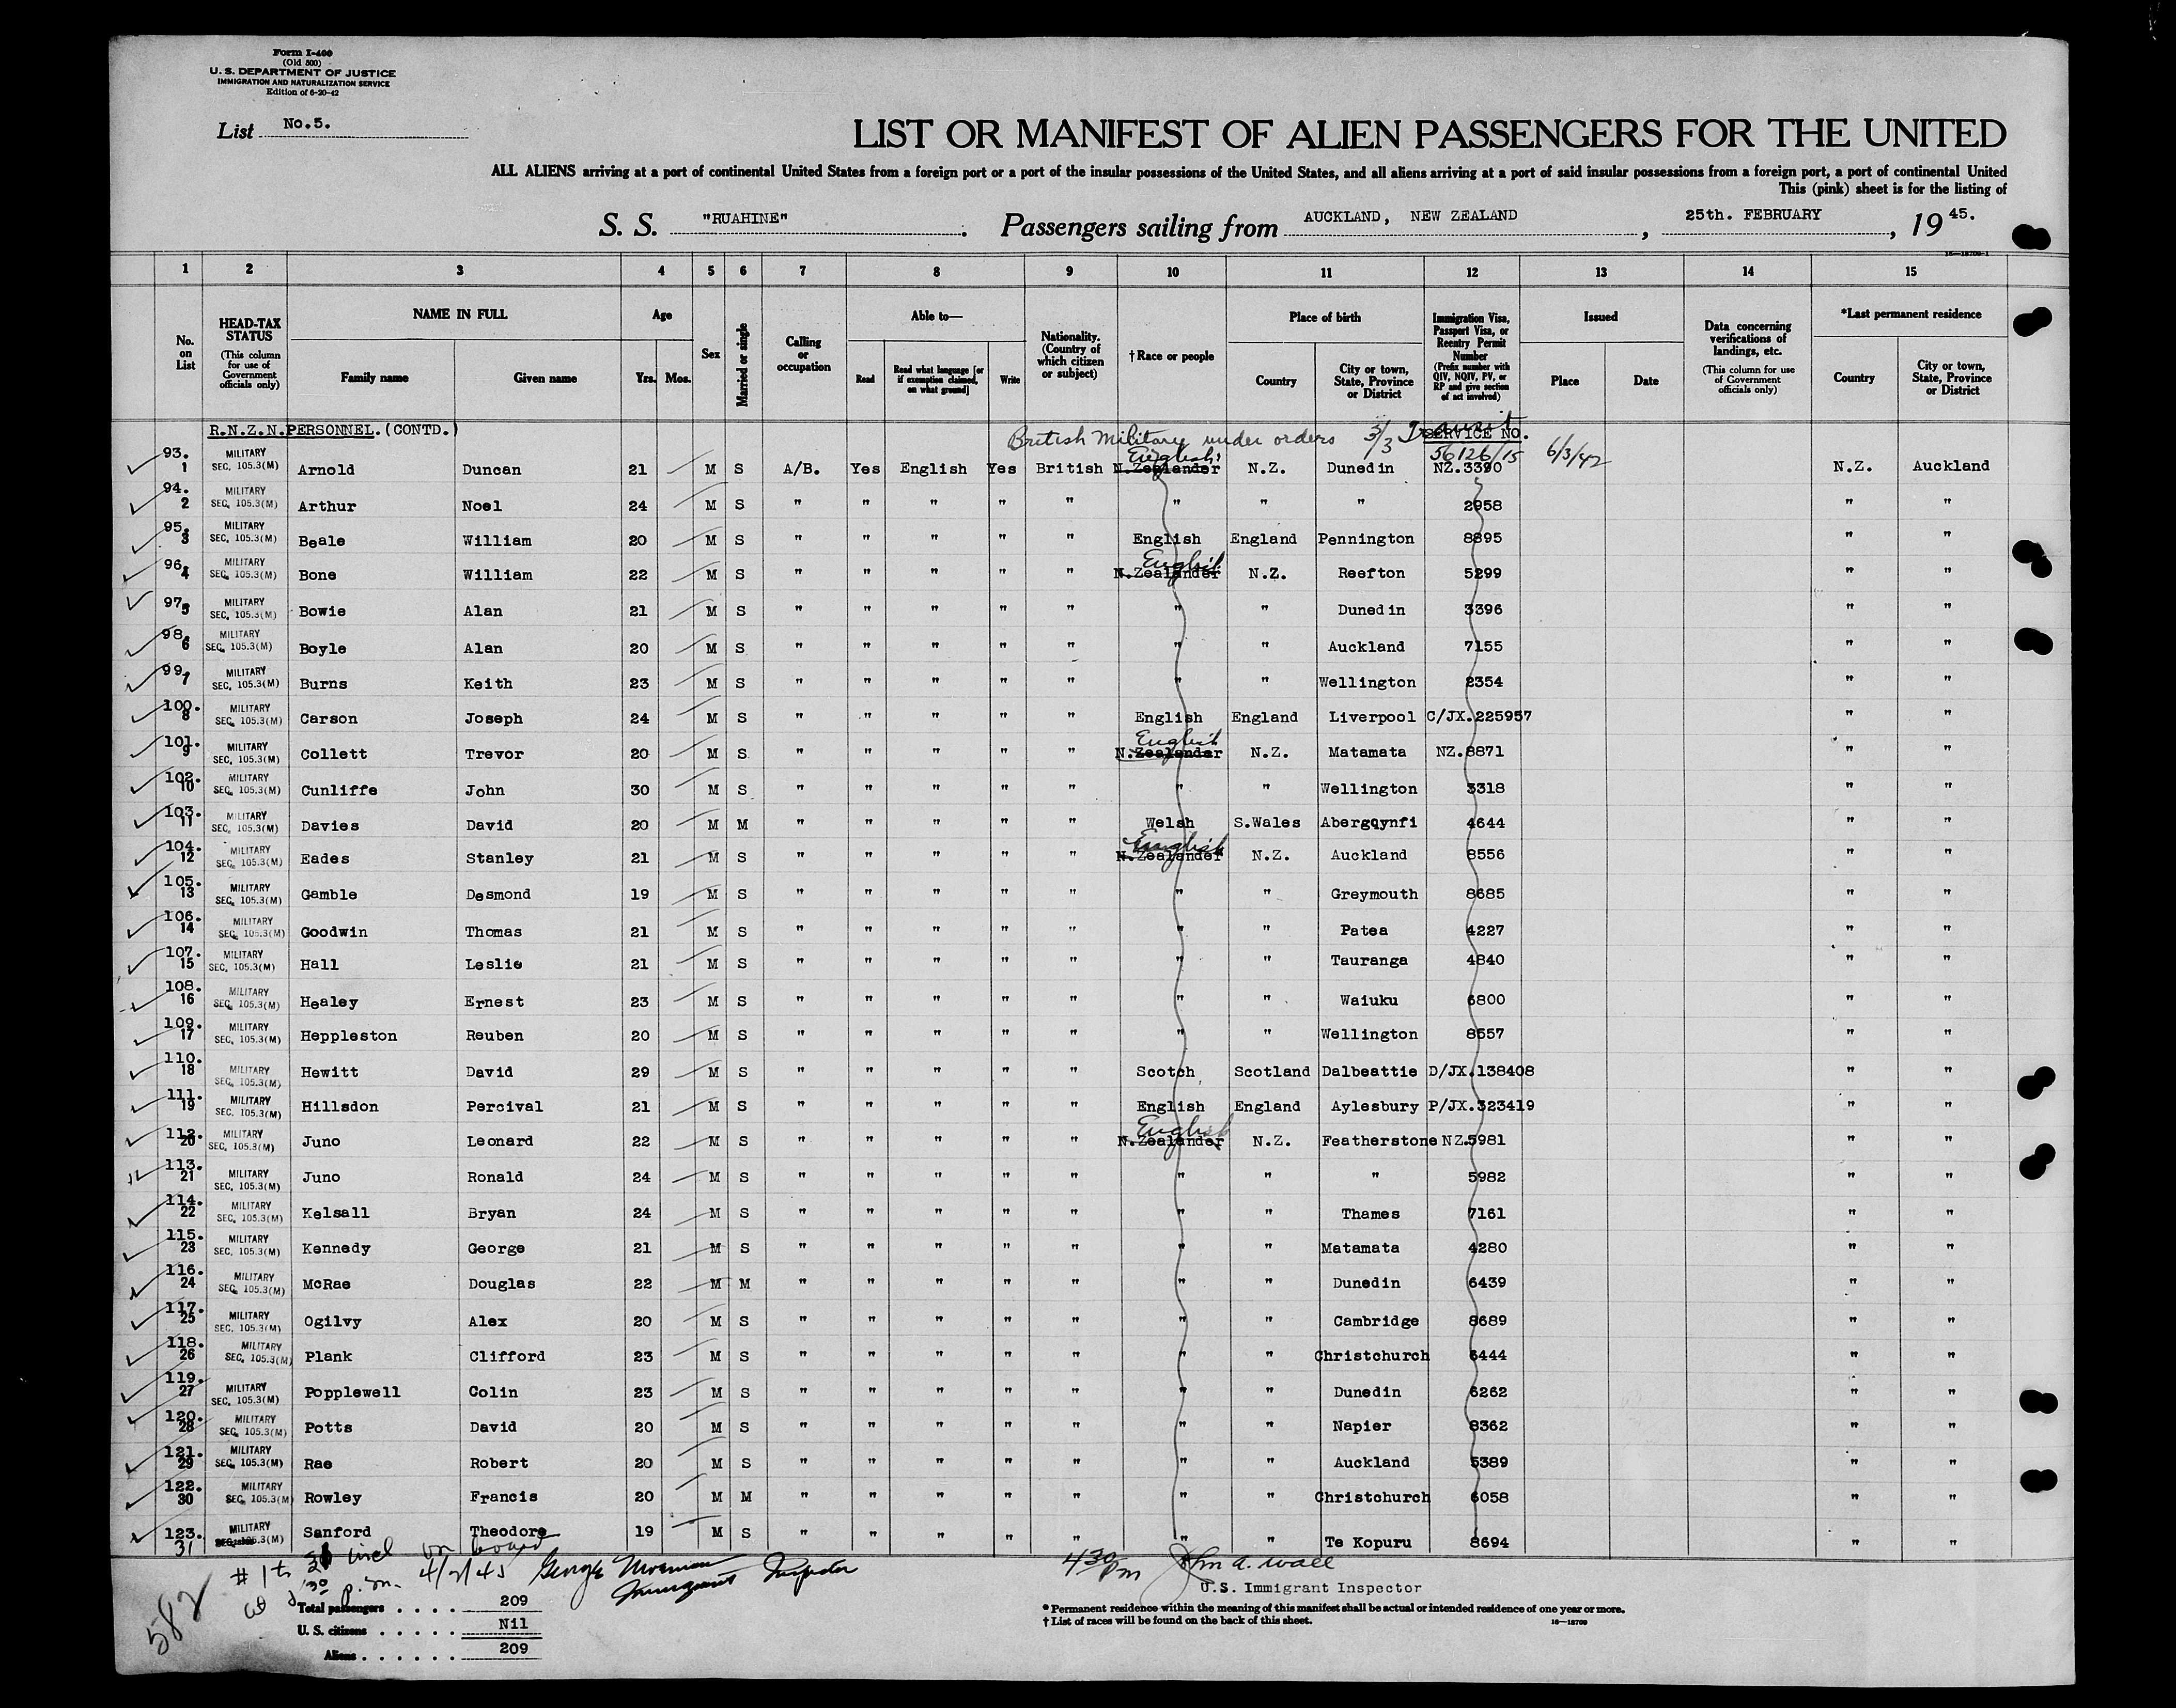 Form I-400
(Old 500)
U. S. DEPARTMENT OF JUSTICE
IMMIGRATION AND NATURALIZATION SERVICE
Edition of 6-20-42
List No.5.
LIST OR MANIFEST OF ALIEN PASSENGERS FOR THE UNITED
ALL ALIENS arriving at a port of continental United States from a foreign port or a port of the insular possessions of the United States, and all aliens arriving at a port of said insular possessions from a foreign port, a port of continental United
This (pink) sheet is for the listing of
S. S. "RUAHINE". Passengers sailing from AUCKLAND, NEW ZEALAND, 25th. FEBRUARY, 19 45.
16—18709-1
1 2 3 4 5 6 7 8 9 10 11 12 13 14 15
No. on List
HEAD-TAX STATUS (This column for use of Government officials only)
NAME IN FULL Family name Given name
Age Yrs. Mos.
Sex
Married or single
Calling or occupation
Able to— Read Read what language [or if exemption claimed, on what ground] Write
Nationality. (Country of which citizen or subject)
† Race or people
Place of birth Country City or town, State, Province or District
Immigration Visa, Passport Visa, or Reentry Permit Number (Prefix number with QIV, NQIV, PV, or RP and give section of act involved)
Issued Place Date
Data concerning verifications of landings, etc. (This column for use of Government officials only)
*Last permanent residence Country City or town, State, Province or District
R.N.Z.N.PERSONNEL.(CONTD.) British Military under orders 3/3 Transit SERVICE NO.
English 56126/15 6/3/42
93. 1 MILITARY SEC. 105.3(M) Arnold Duncan 21 M S A/B. Yes English Yes British N.Zealander N.Z. Dunedin NZ.3390 N.Z. Auckland
94. 2 MILITARY SEC. 105.3(M) Arthur Noel 24 M S " " " " " " " " 2958 " "
95. 3 MILITARY SEC. 105.3(M) Beale William 20 M S " " " " " English England Pennington 8895 " "
English
96. 4 MILITARY SEC. 105.3(M) Bone William 22 M S " " " " " N.Zealander N.Z. Reefton 5299 " "
97. 5 MILITARY SEC. 105.3(M) Bowie Alan 21 M S " " " " " " " Dunedin 3396 " "
98. 6 MILITARY SEC. 105.3(M) Boyle Alan 20 M S " " " " " " " Auckland 7155 " "
99. 7 MILITARY SEC. 105.3(M) Burns Keith 23 M S " " " " " " " Wellington 2354 " "
100. 8 MILITARY SEC. 105.3(M) Carson Joseph 24 M S " " " " " English England Liverpool C/JX.225957 " "
English
101. 9 MILITARY SEC. 105.3(M) Collett Trevor 20 M S " " " " " N.Zealander N.Z. Matamata NZ.8871 " "
102. 10 MILITARY SEC. 105.3(M) Cunliffe John 30 M S " " " " " " " Wellington 3318 " "
103. 11 MILITARY SEC. 105.3(M) Davies David 20 M M " " " " " Welsh S.Wales Abergqynfi 4644 " "
English
104. 12 MILITARY SEC. 105.3(M) Eades Stanley 21 M S " " " " " N.Zealander N.Z. Auckland 8556 " "
105. 13 MILITARY SEC. 105.3(M) Gamble Desmond 19 M S " " " " " " " Greymouth 8685 " "
106. 14 MILITARY SEC. 105.3(M) Goodwin Thomas 21 M S " " " " " " " Patea 4227 " "
107. 15 MILITARY SEC. 105.3(M) Hall Leslie 21 M S " " " " " " " Tauranga 4840 " "
108. 16 MILITARY SEC. 105.3(M) Healey Ernest 23 M S " " " " " " " Waiuku 6800 " "
109. 17 MILITARY SEC. 105.3(M) Heppleston Reuben 20 M S " " " " " " " Wellington 8557 " "
110. 18 MILITARY SEC. 105.3(M) Hewitt David 29 M S " " " " " Scotch Scotland Dalbeattie D/JX.138408 " "
111. 19 MILITARY SEC. 105.3(M) Hillsdon Percival 21 M S " " " " " English England Aylesbury P/JX.323419 " "
English
112. 20 MILITARY SEC. 105.3(M) Juno Leonard 22 M S " " " " " N.Zealander N.Z. Featherstone NZ.5981 " "
113. 21 MILITARY SEC. 105.3(M) Juno Ronald 24 M S " " " " " " " " 5982 " "
114. 22 MILITARY SEC. 105.3(M) Kelsall Bryan 24 M S " " " " " " " Thames 7161 " "
115. 23 MILITARY SEC. 105.3(M) Kennedy George 21 M S " " " " " " " Matamata 4280 " "
116. 24 MILITARY SEC. 105.3(M) McRae Douglas 22 M M " " " " " " " Dunedin 6439 " "
117. 25 MILITARY SEC. 105.3(M) Ogilvy Alex 20 M S " " " " " " " Cambridge 8689 " "
118. 26 MILITARY SEC. 105.3(M) Plank Clifford 23 M S " " " " " " " Christchurch 6444 " "
119. 27 MILITARY SEC. 105.3(M) Popplewell Colin 23 M S " " " " " " " Dunedin 6262 " "
120. 28 MILITARY SEC. 105.3(M) Potts David 20 M S " " " " " " " Napier 8362 " "
121. 29 MILITARY SEC. 105.3(M) Rae Robert 20 M S " " " " " " " Auckland 5389 " "
122. 30 MILITARY SEC. 105.3(M) Rowley Francis 20 M M " " " " " " " Christchurch 6058 " "
123. 31 MILITARY SEC. 105.3(M) Sanford Theodore 19 M S " " " " " " " Te Kopuru 8694 " "
# 1 to 31 incl on board George Immigrant Inspector 430 pm John A. Wall
at p.m. U.S. Immigrant Inspector
582
Total passengers . . . . 209
U. S. citizens . . . . . Nil
Aliens . . . . . . 209
* Permanent residence within the meaning of this manifest shall be actual or intended residence of one year or more.
† List of races will be found on the back of this sheet. 16—18709